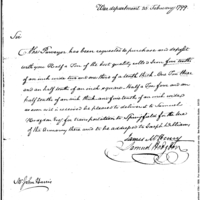 War department 25 February 1799.
Sir
The Purveyor has been requested to purchase and deposit
with you Half a Ton of the best quality cast Steel five tenths
of an inch wide two and one third of a tenth thick. One Ton three
and one half tenths of an inch square. Half a Ton four and one
half tenths of an inch thick and four tenths of an inch wide
when received be pleased to deliver it to Samuel
Hodgdon Esq. for transportation to Springfield for the use
of the Armory there and to be assigned to Joseph Williams
James McHenry
Samuel Hodgdon
Mr John Harris